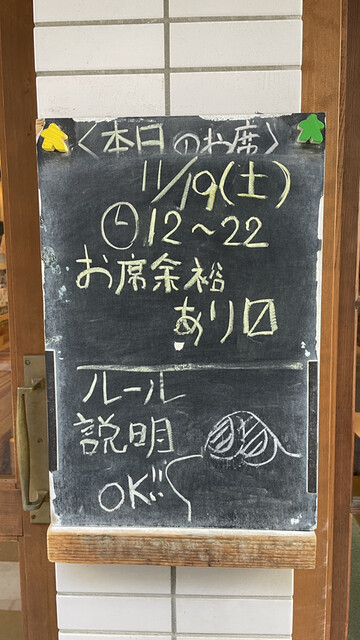 〈本日のお席〉
11/19(土)
12～22
お席余裕
あり
ルール
説明
OK!!